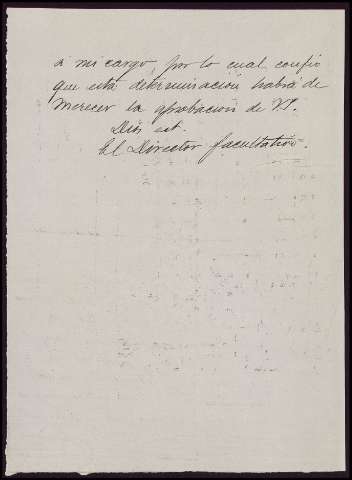 á mi cargo, por lo cual confio
que esta determinación habrá de
merecer la aprobacion de V.
Dios
El Director facultativo.